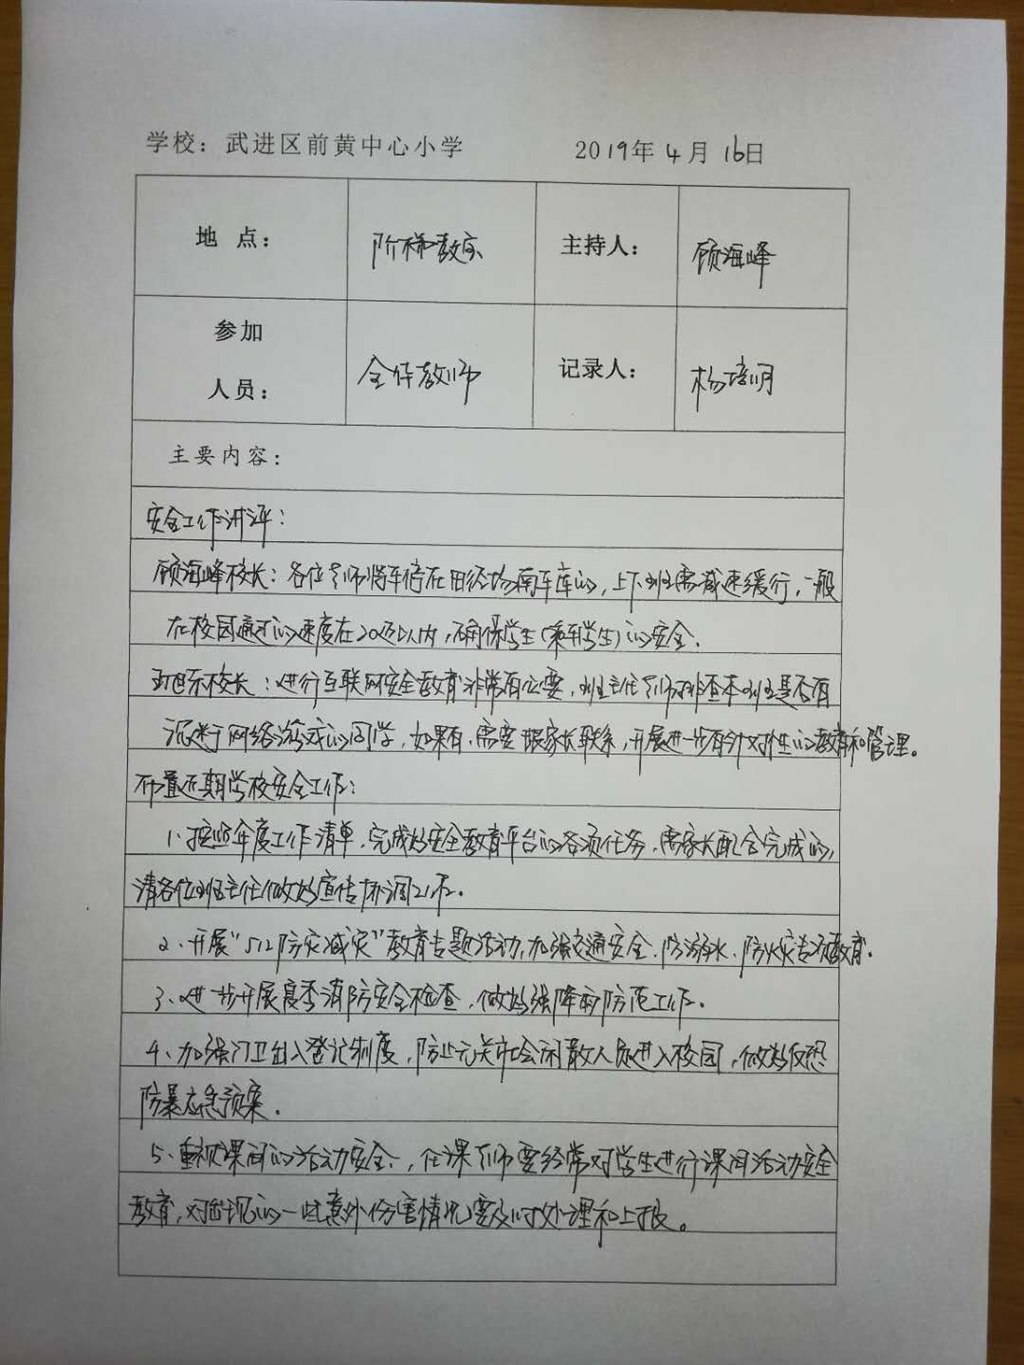 学校：武进区前黄中心小学 2019年4月16日
地 点： 阶梯教室 主持人： 顾海峰
参加
人员： 全体教师 记录人： 杨培明
主要内容：
安全工作讲评：
顾海峰校长：各位老师将车停在田径场南车库的，上下班需减速缓行，一般
在校园通过的速度在20码以内，确保学生（乘车学生）的安全。
校长：进行互联网安全教育非常有必要，班主任老师排查本班是否有
沉迷于网络游戏的同学，如果有，需要跟家长联系，开展进一步有针对性的教育和管理。
布置近期学校安全工作：
1、按照年度工作清单，完成好安全教育平台的各项任务，需家长配合完成的，
请各位班主任做好宣传协调工作。
2、开展“512防灾减灾”教育专题活动，加强交通安全、防溺水、防火灾专项教育。
3、进一步开展夏季消防安全检查，做好强降雨防范工作。
4、加强门卫出入登记制度，防止无关社会闲散人员进入校园，做好反恐
防暴应急预案。
5、重视课间的活动安全，任课老师要经常对学生进行课间活动安全
教育，对出现的一些意外伤害情况要及时处理和上报。